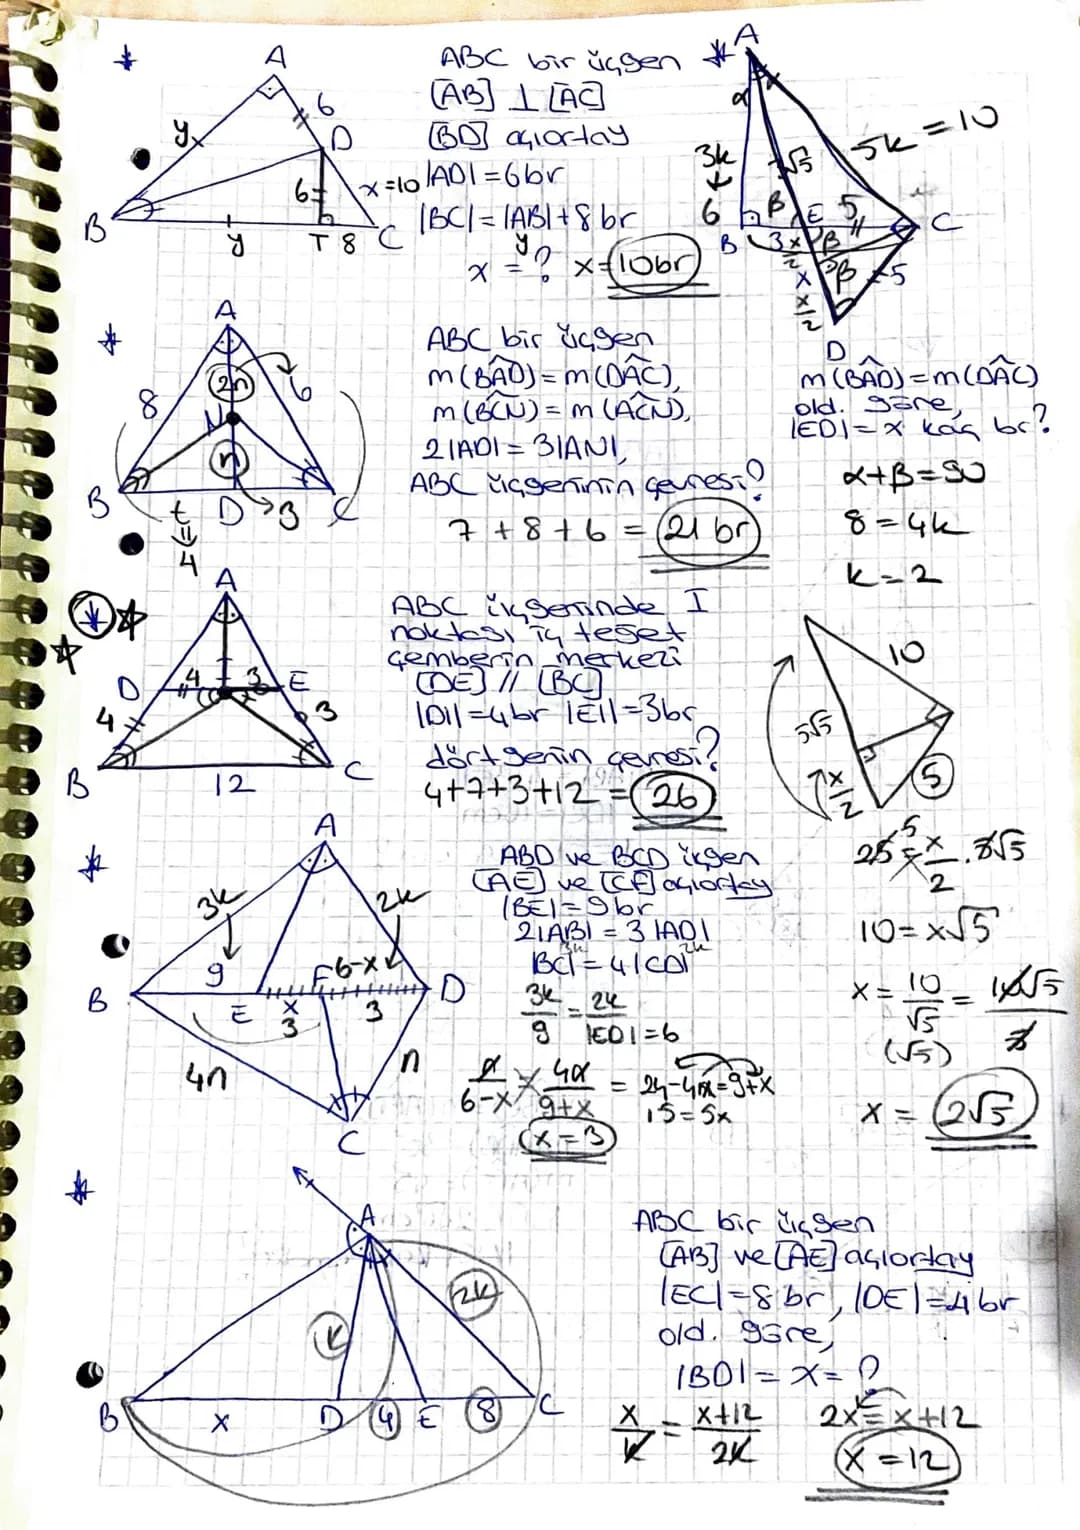 A
6
D
y
6
x=10
B
y
T
8
C
ABC bir üçgen
[AB] ⊥ [AC]
[BD] açıortay
|AD|=6br
|BC|=|AB|+8br
y
x = ? x=10br
A
α
x
3k
6
√5
5k = 10
B
β
E
5
C
3
x/2
β
x
β
5
x/2
D
m(BÂD)=m(DÂC)
old. göre,
|ED|=x kaç br?
α+β=90
8=4k
k=2
10
5√5
x/2
5
25 = x/2 . 5√5
5
10=x√5
x = 10/√5 = 10√5/5
(√5)
x = 2√5
A
8
2n
6
N
n
B
t
D
3
C
4
ABC bir üçgen
m(BÂD)=m(DÂC),
m(BĈN)=m(AĈN),
2|AD|=3|AN|,
ABC üçgeninin çevresi?
7+8+6 = 21 br
A
D
4
3
E
4
3
B
12
C
ABC üçgeninde I
noktası iç teğet
çemberin merkezi
[DE] // [BC]
|DI|=4br |EI|=3br
dörtgenin çevresi?
4+7+3+12 = 26
A
3k
2k
9
F
6-x
B
E
x
3
3
D
4n
n
C
ABD ve BCD üçgen
[AE] ve [CF] açıortay
|BE|=9br
2|AB| = 3|AD|
3k 2k
|BC|=4|CD|
3k/9 = 2k/|ED|=6
n/6-x = 4n/9+x = 24-4x=9+x
15=5x
x=3
A
K
2K
B
x
D
4
E
8
C
ABC bir üçgen
[AB] ve [AE] açıortay
|EC|=8br, |DE|=4br
old. göre,
|BD| = x = ?
x/K = x+12/2K
2x = x+12
x=12